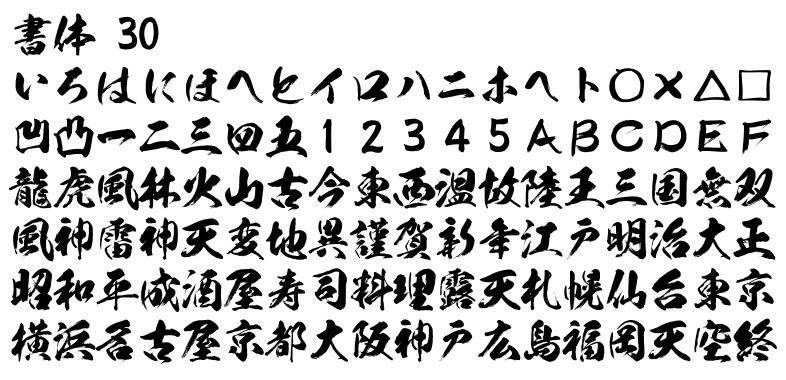 書体 30
いろはにほへとイロハニホヘト○×△□
凹凸一二三四五12345ABCDEF
龍虎風林火山古今東西温故陸王三国無双
風神雷神天変地異謹賀新年江戸明治大正
昭和平成酒屋寿司料理露天札幌仙台東京
横浜名古屋京都大阪神戸広島福岡天空終